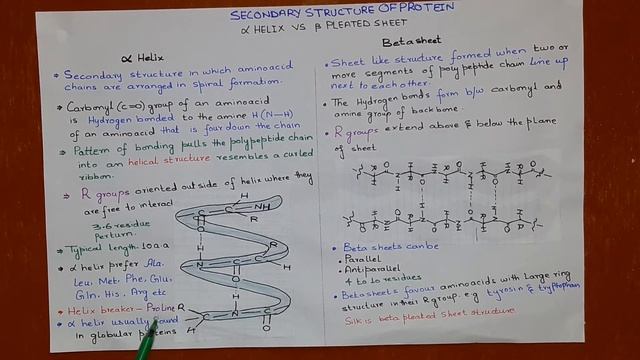 SECONDARY STRUCTURE OF PROTEIN
α HELIX VS β PLEATED SHEET
α Helix
⇒ Secondary structure in which aminoacid
chains are arranged in Spiral formation.
⇒ Carbonyl (c=o) group of an aminoacid
is Hydrogen bonded to the amine H (N-H)
of an aminoacid that is four down the chain
⇒ Pattern of bonding pulls the polypeptide chain
into an helical structure resembles a curled
ribbon.
⇒ R groups oriented outside of helix where they
are free to interact
3.6 residue
perturn.
⇒ Typical length 10 a.a
• α helix prefer Ala.
Leu. Met. Phe. Glu.
Gln. His. Arg etc
• Helix breaker - Proline
• α helix usually found
in globular proteins
C
NH
H
R
C
O
H
N
C
C
R
H
O
H
R
C
N
C
H
O
Beta sheet
• Sheet like structure formed when two or
more segments of polypeptide chain line up
next to each other.
• The Hydrogen bonds form b/w carbonyl and
amine group of backbone.
• R groups extend above & below the plane
of sheet
• Beta sheets can be
• Parallel
• Antiparallel
4 to 10 residues
• Beta sheets favous aminoacids with Large ring
structure in their R group. e.g tyrosin & tryptophan
Silk is beta pleated sheet structure